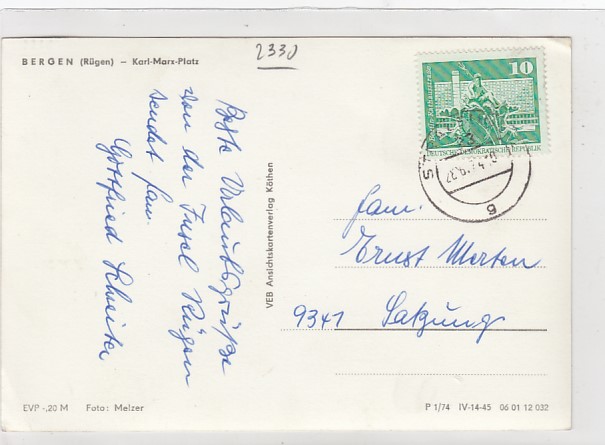 BERGEN (Rügen) – Karl-Marx-Platz
2330
Beste Urlaubsgrüße
von der Insel Rügen
sendet fam.
Gottfried
VEB Ansichtskartenverlag Köthen
10
Berlin · Rathausstraße
DEUTSCHE DEMOKRATISCHE REPUBLIK
g
fam.
Ernst Merten
9341 Satzung
EVP -,20 M Foto: Melzer
P 1/74 IV-14-45 06 01 12 032